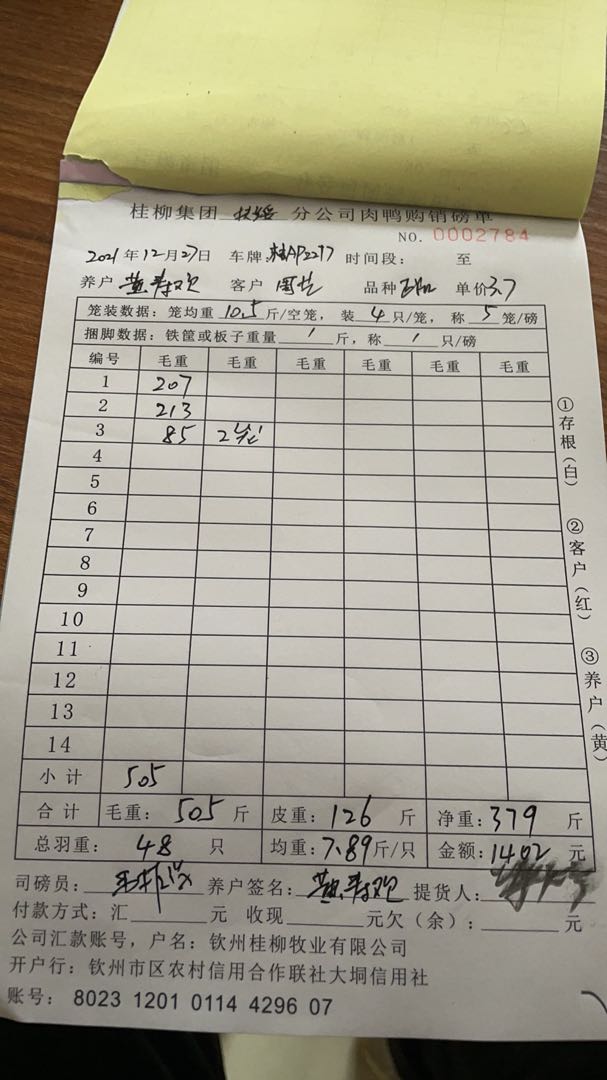 桂柳集团 扶绥 分公司肉鸭购销磅单
NO. 0002784
2021年12月27日 车牌:桂AP2297 时间段: 至
养户 黄寿欢 客户 品种 单价3.7
笼装数据:笼均重 10.5 斤/空笼,装 4 只/笼,称 5 笼/磅
捆脚数据:铁筐或板子重量 / 斤,称 / 只/磅
编号 毛重 毛重 毛重 毛重 毛重 毛重
1 207
2 213
3 85 2笼
4
5
6
7
8
9
10
11
12
13
14
小计 505
合计 毛重: 505 斤 皮重: 126 斤 净重: 379 斤
总羽重: 48 只 均重: 7.89 斤/只 金额: 1402 元
司磅员: 养户签名: 黄寿欢 提货人:
付款方式:汇 元 收现 元欠(余): 元
公司汇款账号,户名:钦州桂柳牧业有限公司
开户行:钦州市区农村信用合作联社大垌信用社
账号: 8023 1201 0114 4296 07
①存根(白)
②客户(红)
③养户(黄)